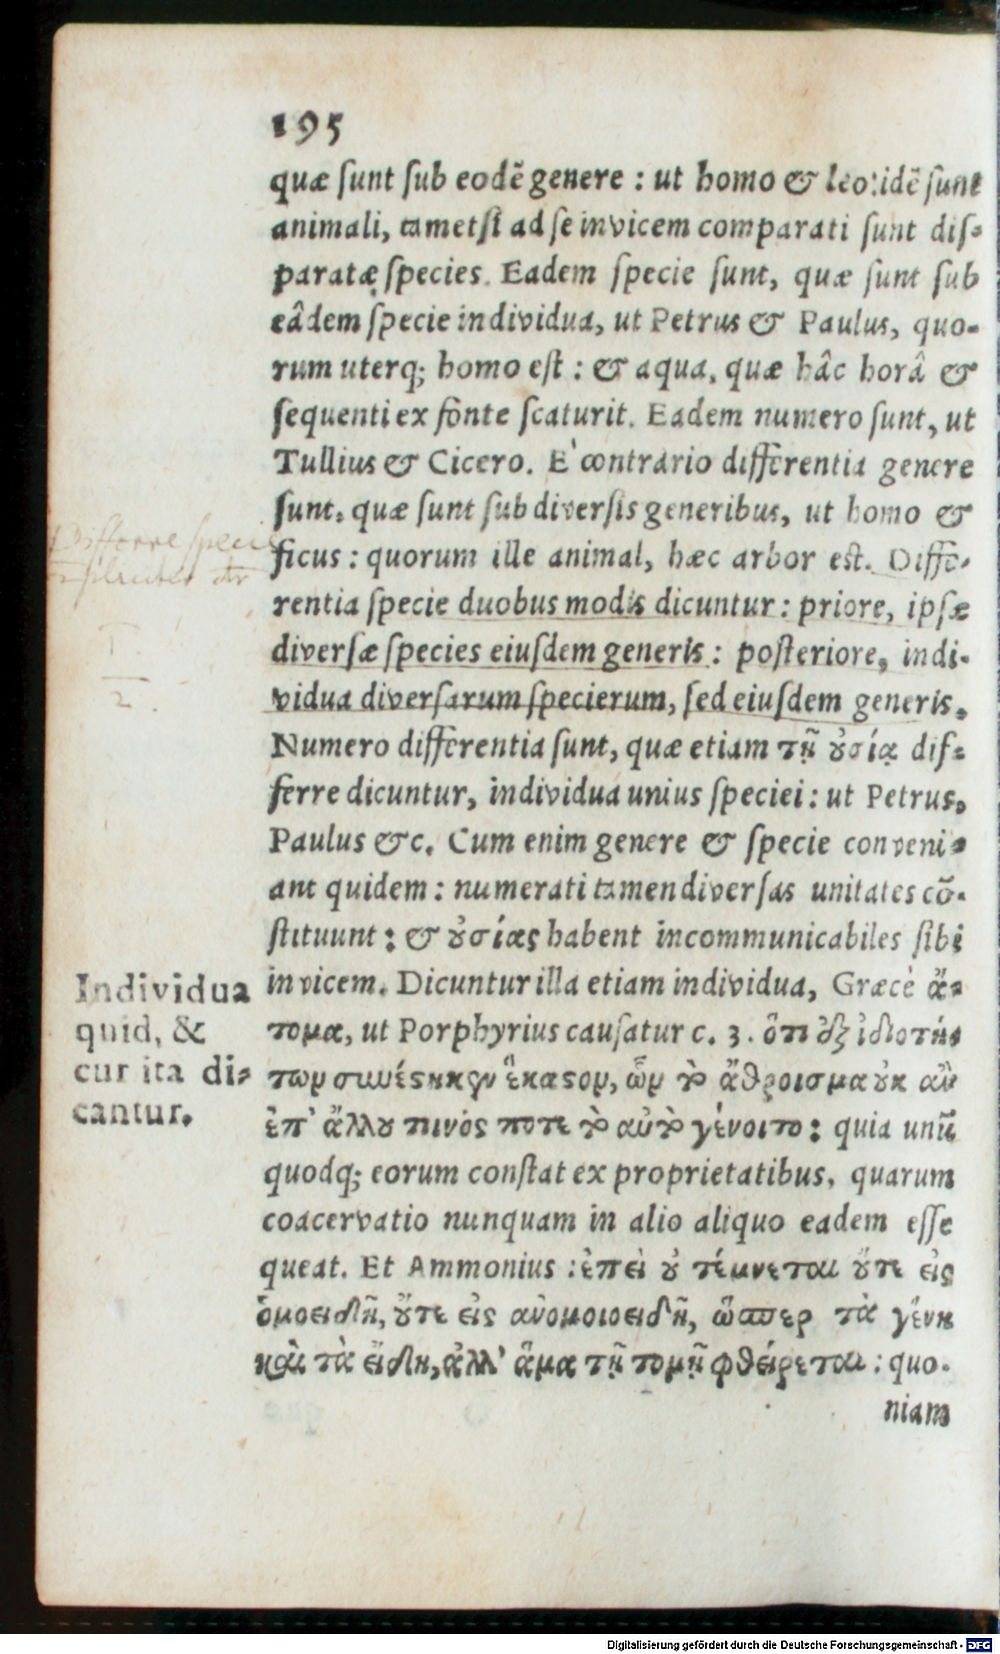 195
quæ ſunt ſub eodē genere : ut homo & leo: idē ſunt
animali, tametſi ad ſe invicem comparati ſunt diſ-
paratæ ſpecies. Eadem ſpecie ſunt, quæ ſunt ſub
eâdem ſpecie individua, ut Petrus & Paulus, quo-
rum uterq; homo eſt : & aqua, quæ hâc horâ &
ſequenti ex fonte ſcaturit. Eadem numero ſunt, ut
Tullius & Cicero. E` contrario differentia genere
ſunt, quæ ſunt ſub diverſis generibus, ut homo &
ficus : quorum ille animal, hæc arbor est. Diffe-
rentia ſpecie duobus modis dicuntur : priore, ipſæ
diverſæ ſpecies eiuſdem generis : poſteriore, indi-
vidua diverſarum ſpecierum, ſed eiuſdem generis.
Numero differentia ſunt, quæ etiam τῇ ȣσίᾳ dif-
ferre dicuntur, individua unius ſpeciei : ut Petrus,
Paulus &c. Cum enim genere & ſpecie conveni-
ant quidem : numerati tamen diverſas unitates cō-
ſtituunt : & ȣ̓σίας habent incommunicabiles ſibi
invicem. Dicuntur illa etiam individua, Græcè ἄ-
τομα, ut Porphyrius cauſatur c. 3. ὅτι ἐξ ἰδιοτή-
των συνέστηκεν ἕκαστον, ὧν τὸ ἄθροισμα ȣκ ἂν
ἐπ' ἄλλȣ τινός ποτε τὸ αὐτὸ γένοιτο : quia unū
quodq; eorum conſtat ex proprietatibus, quarum
coacervatio nunquam in alio aliquo eadem eſſe
queat. Et Ammonius : ἐπεὶ ȣ τέμνεται ȣ̓́τε εἰς
ὁμοειδῆ, ȣ̓́τε εἰς ἀνομοιοειδῆ, ὥσπερ τὰ γένη
καὶ τὰ εἴδη, ἀλλ' ἅμα τῇ τομῇ φθείρεται : quo-
niam
Individua
quid, &
cur ita di-
cantur.
Differre specie
1
2.
Digitalisierung gefördert durch die Deutsche Forschungsgemeinschaft - DFG